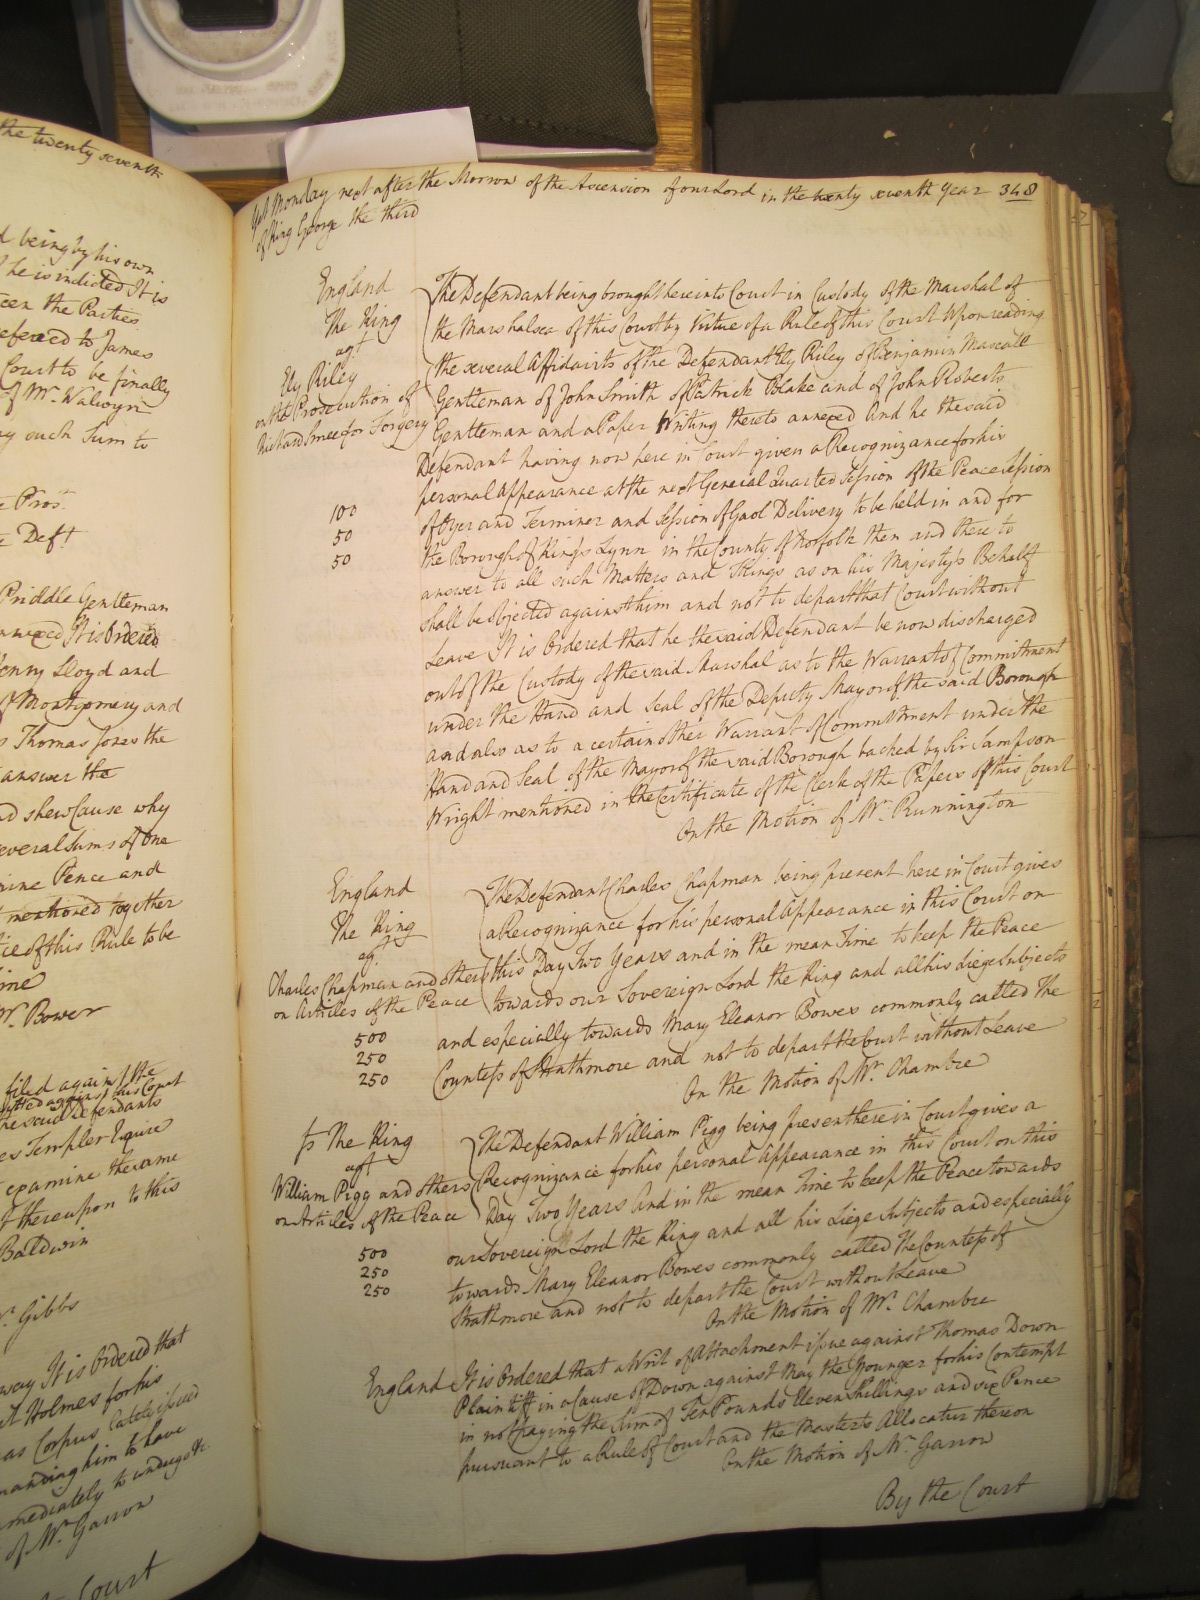 the twenty seventh
d being by his own
he is indicted It is
een the Parties
refered to James
Court to be finally
of Mr. Walwyn
ny such Sum to
e Prost.
e Deft
Priddle Gentleman
nnexed It is Ordered
Henry Lloyd and
of Montgomery and
s Thomas Jones the
answer the
nd shew Cause why
several Sums of One
nine Pence and
mentioned together
ice of this Rule to be
ine
Mr. Bower
filed against the
against this Court
the said Defendants
es Templer Esquire
examine the same
thereupon to this
Baldwin
Mr. Gibbs
way It is Ordered that
Holmes for his
as Corpus lately issued
manding him to have
mediately to undergo &c
of Mr. Garrow
Court
Yet Monday next after the Morrow of the Ascension of our Lord in the twenty seventh Year 348
of King George the third
England
The King
agt
Ely Riley
on the Prosecution of
Richard Smee for Forgery
100
50
50
The Defendant being brought here into Court in Custody of the Marshal of
the Marshalsea of this Court by Virtue of a Rule of this Court Upon reading
the several Affidavits of the Defendant Ely Riley of Benjamin Mascall
Gentleman of John Smith of Patrick Blake and of John Roberts
Gentleman and a Paper Writing thereto annexed And he the said
Defendant having now here in Court given a Recognizance for his
personal Appearance at the next General Quarter Session of the Peace Session
of Oyer and Terminer and Session of Gaol Delivery to be held in and for
the Borough of King's Lynn in the County of Norfolk then and there to
answer to all such Matters and Things as on his Majesty's Behalf
shall be objected against him and not to depart that Court without
Leave It is Ordered that he the said Defendant be now discharged
out of the Custody of the said Marshal as to the Warrant of Commitment
under the Hand and Seal of the Deputy Mayor of the said Borough
and also as to a certain other Warrant of Commitment under the
Hand and Seal of the Mayor of the said Borough backed by Sir Sampson
Wright mentioned in the Certificate of the Clerk of the Papers of this Court
On the Motion of Mr. Runnington
England
The King
agt.
Charles Chapman and others
on Articles of the Peace
500
250
250
The Defendant Charles Chapman being present here in Court gives
a Recognizance for his personal Appearance in this Court on
this Day Two Years and in the mean Time to keep the Peace
towards our Sovereign Lord the King and all his Liege Subjects
and especially towards Mary Eleanor Bowes commonly called The
Countess of Strathmore and not to depart the Court without Leave
On the Motion of Mr. Chambre
The King
agt
William Pigg and others
on Articles of the Peace
500
250
250
The Defendant William Pigg being present here in Court gives a
Recognizance for his personal Appearance in this Court on this
Day Two Years And in the mean Time to keep the Peace towards
our Sovereign Lord the King and all his Liege Subjects and especially
towards Mary Eleanor Bowes commonly called The Countess of
Strathmore and not to depart the Court without Leave
On the Motion of Mr. Chambre
England It is Ordered that a Writ of Attachment issue against Thomas Down
Plaintiff in a Cause of Down against May the Younger for his Contempt
in not paying the Sum of Ten Pounds Eleven Shillings and six Pence
pursuant to a Rule of Court and the Master's Allocatur thereon
On the Motion of Mr. Garrow
By the Court